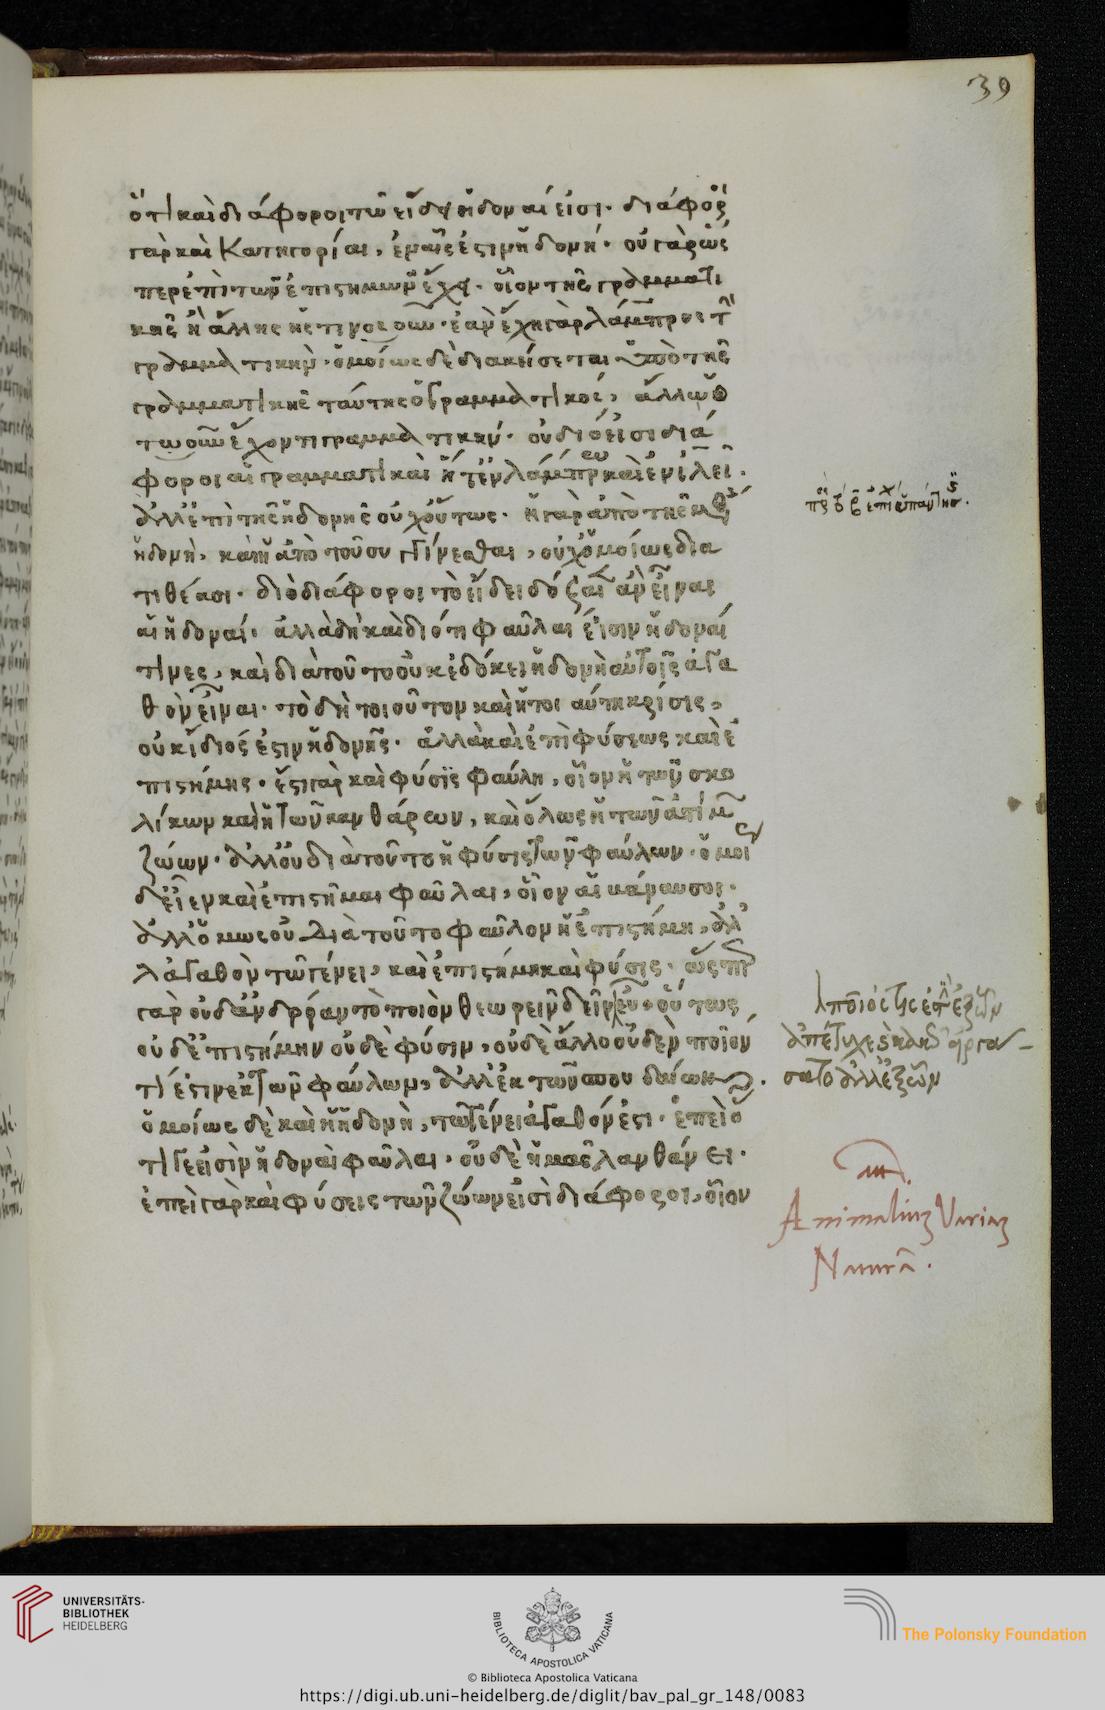 39
ὅτι καὶ διάφοροι τῶ εἴδει ἡδοναί εἰσι. διάφορ
γὰρ καὶ κατηγορίαι, ἐν αἷς ἐστιν ἡδονή. οὐ γὰρ ὡς
περ ἐπὶ τῶν ἐπιστημῶν ἔχει. οἷον τῆς γραμματι
κῆς ἢ ἄλλης ἧς τινος οὖν. ἐὰν ἔχη γὰρ λάμπρος τὴν
γραμματικὴν. ὁμοίως δὲ διακείσεται ὑπὸ τῆς
γραμματικῆς ταύτης ὁ γραμματικός, ἄλλω
τωοῦν ἔχοντι γραμματικήν. οὐ δύο εἰσι διά
φοροι αἱ γραμματικαὶ ἥ τ' ἐν λάμπρω καὶ ἐν ἰλεῖ.
ἀλλ' ἐπὶ τῆς ἡδονῆς οὐχ οὕτως. ἡ γὰρ ἀπὸ τῆς μέθης
ἡδονὴ, καὶ ἡ ἀπὸ τοῦ συγγίνεσθαι, οὐχ ὁμοίως δια
τιθέασι. διὸ διάφοροι τῶ εἴδει δόξαιεν ἂν εἶναι
αἱ ἡδοναί. ἀλλὰ δὴ καὶ διότι φαῦλαί εἰσιν ἡδοναί
τινες, καὶ διὰ τοῦτο οὐκ ἐδόκει ἡδονὴ αὐτοῖς ἀγα
θὸν εἶναι. τὸ δὴ τοιοῦτον καὶ ἥτοι αύτη κρίσις,
οὐκ ἴδιός ἐστιν ἡδονῆς. ἀλλὰ καὶ ἐπὶ φύσεως καὶ ἐ
πιστήμης. ἔστι γὰρ καὶ φύσις φαύλη, οἷον ἡ τῶν σκω
λήκων καὶ ἡ τῶν κανθάρων, καὶ ὅλως ἡ τῶν ἀτίμων
ζώων. ἀλλ' οὐ διὰ τοῦτο ἡ φύσις τῶν φαύλων. ὁμοίως
δὲ εἶεν καὶ ἐπιστῆμαι φαῦλαι, οἷον αἱ βάναυσοι.
ἀλλ' ὅμως οὐ διὰ τοῦτο φαῦλον ἡ ἐπιστήμη, ἀλ
λ' ἀγαθὸν τῶ γένει, καὶ ἐπιστήμη καὶ φύσις. ὥσπερ
γὰρ οὐδ' ἀνδριάντοποιὸν θεωρεῖν δεῖ
οὐδ' ἐπιστήμην οὐδὲ φύσιν, οὐδὲ ἄλλο οὐδὲν ποῖόν
τί ἐστιν ἐκ τῶν φαύλων, ἀλλ' ἐκ τῶν σπουδαίων.
ὁμοίως δὲ καὶ ἡ ἡδονὴ, τῶ γένει ἀγαθόν ἐστι. ἐπεὶ ὅ
τι γε εἰσὶν ἡδοναὶ φαῦλαι, οὐδὲ ἡμᾶς λανθάνει.
ἐπεὶ γὰρ καὶ φύσεις τῶν ζώων εἰσὶ διάφοροι, οἷον
ἀπέτυχε καὶ κακῶς εἰργά-
σατο ἀλλ' ἐξ ὧν
Animalium Variam
Naturam.
UNIVERSITÄTS-
BIBLIOTHEK
HEIDELBERG
BIBLIOTECA APOSTOLICA VATICANA
The Polonsky Foundation
© Biblioteca Apostolica Vaticana
https://digi.ub.uni-heidelberg.de/diglit/bav_pal_gr_148/0083